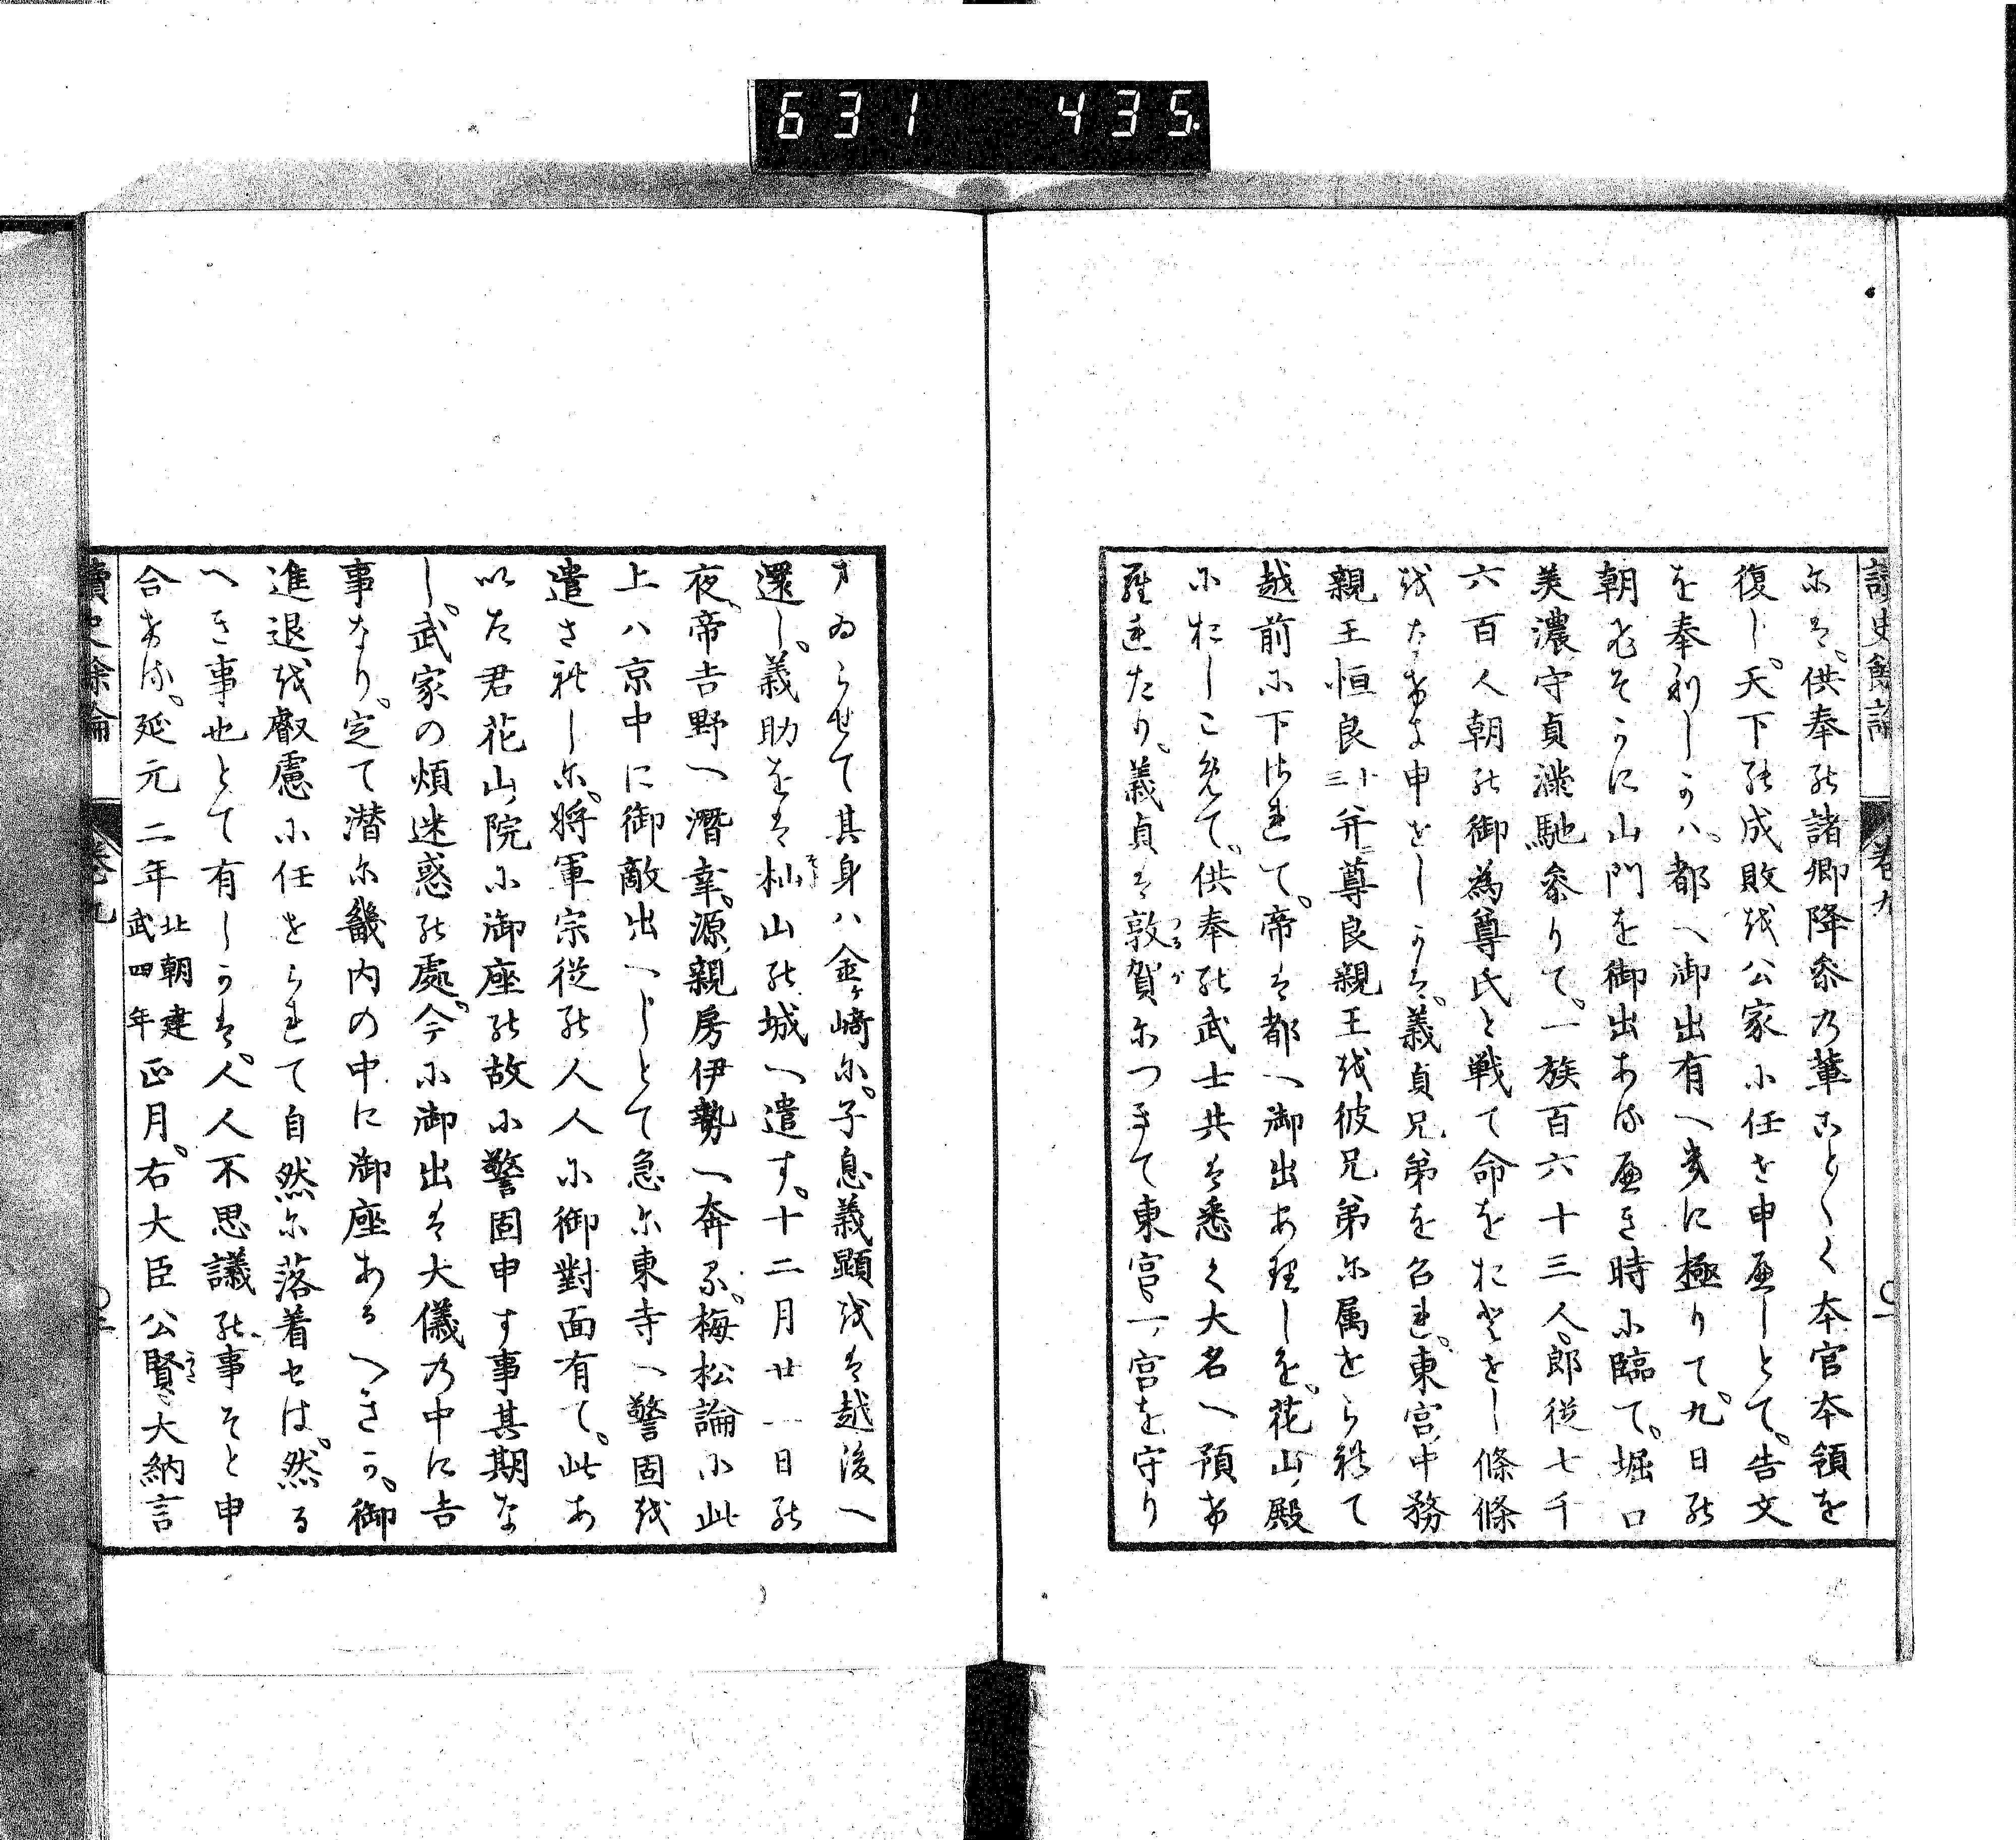 631 435.
讀史餘論 卷九
には。供奉の諸卿降参の輩ことく本官本領を
復し。天下の成敗を公家に任せ申へしとて。告文
を奉利しかハ。都へ御出有へきに極りて。九日の
朝すてに山門を御出ある へき時に臨て。堀口
美濃守貞満馳参りて。一族百六十三人。郎従七千
六百人朝の御為尊氏と戦て命をおとせし條條
をなけき申せしかは。義貞兄弟を召れ。東宮中務
親王恒良十三并尊良親王を彼兄弟に属せられて
越前に下され て。帝は都へ御出ありしを。花山殿
におしこめて。供奉の武士共は悉く大名へ預け
られたり。義貞は敦賀につきて東宮一宮を守り
まゐらせて其身ハ金ヶ崎に。子息義顕をは越後へ
還し。義助をは杣山の城へ遣す。十二月廿一日の
夜。帝吉野へ潛幸。源親房伊勢へ奔る。梅松論に此
上ハ京中に御敵出へしとて急に東寺へ警固を
遣されしに。将軍宗従の人人に御對面有て。此あ
いた君花山院に御座の故に警固申す事其期な
し。武家の煩迷惑の處。今に御出は大儀の中に吉
事なり。定て潜に畿内の中に御座あるへきか。御
進退を叡慮に任せられて自然に落着せは。然る
へき事也とて有しかは。人人不思議の事そと申
合ける。延元二年北朝建武四年正月。右大臣公賢大納言
讀史餘論 卷九